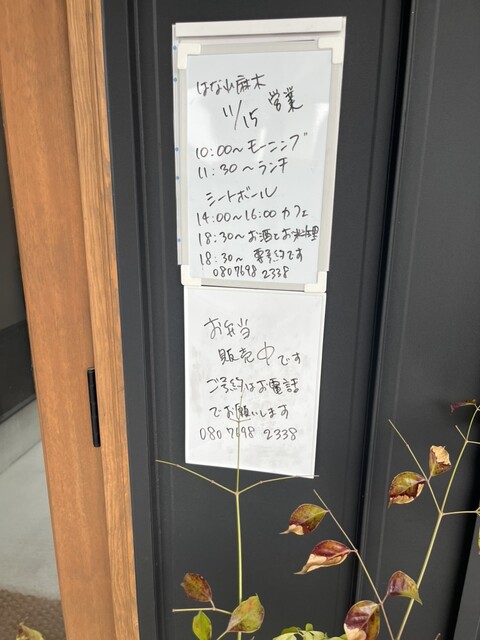 はなれ麻木
11/15 営業
10:00〜モーニング
11:30〜ランチ
ミートボール
14:00〜16:00 カフェ
18:30〜お酒とお料理
18:30〜 要予約です
080 7698 2338
お弁当
販売中です
ご予約はお電話
でお願いします
080 7698 2338